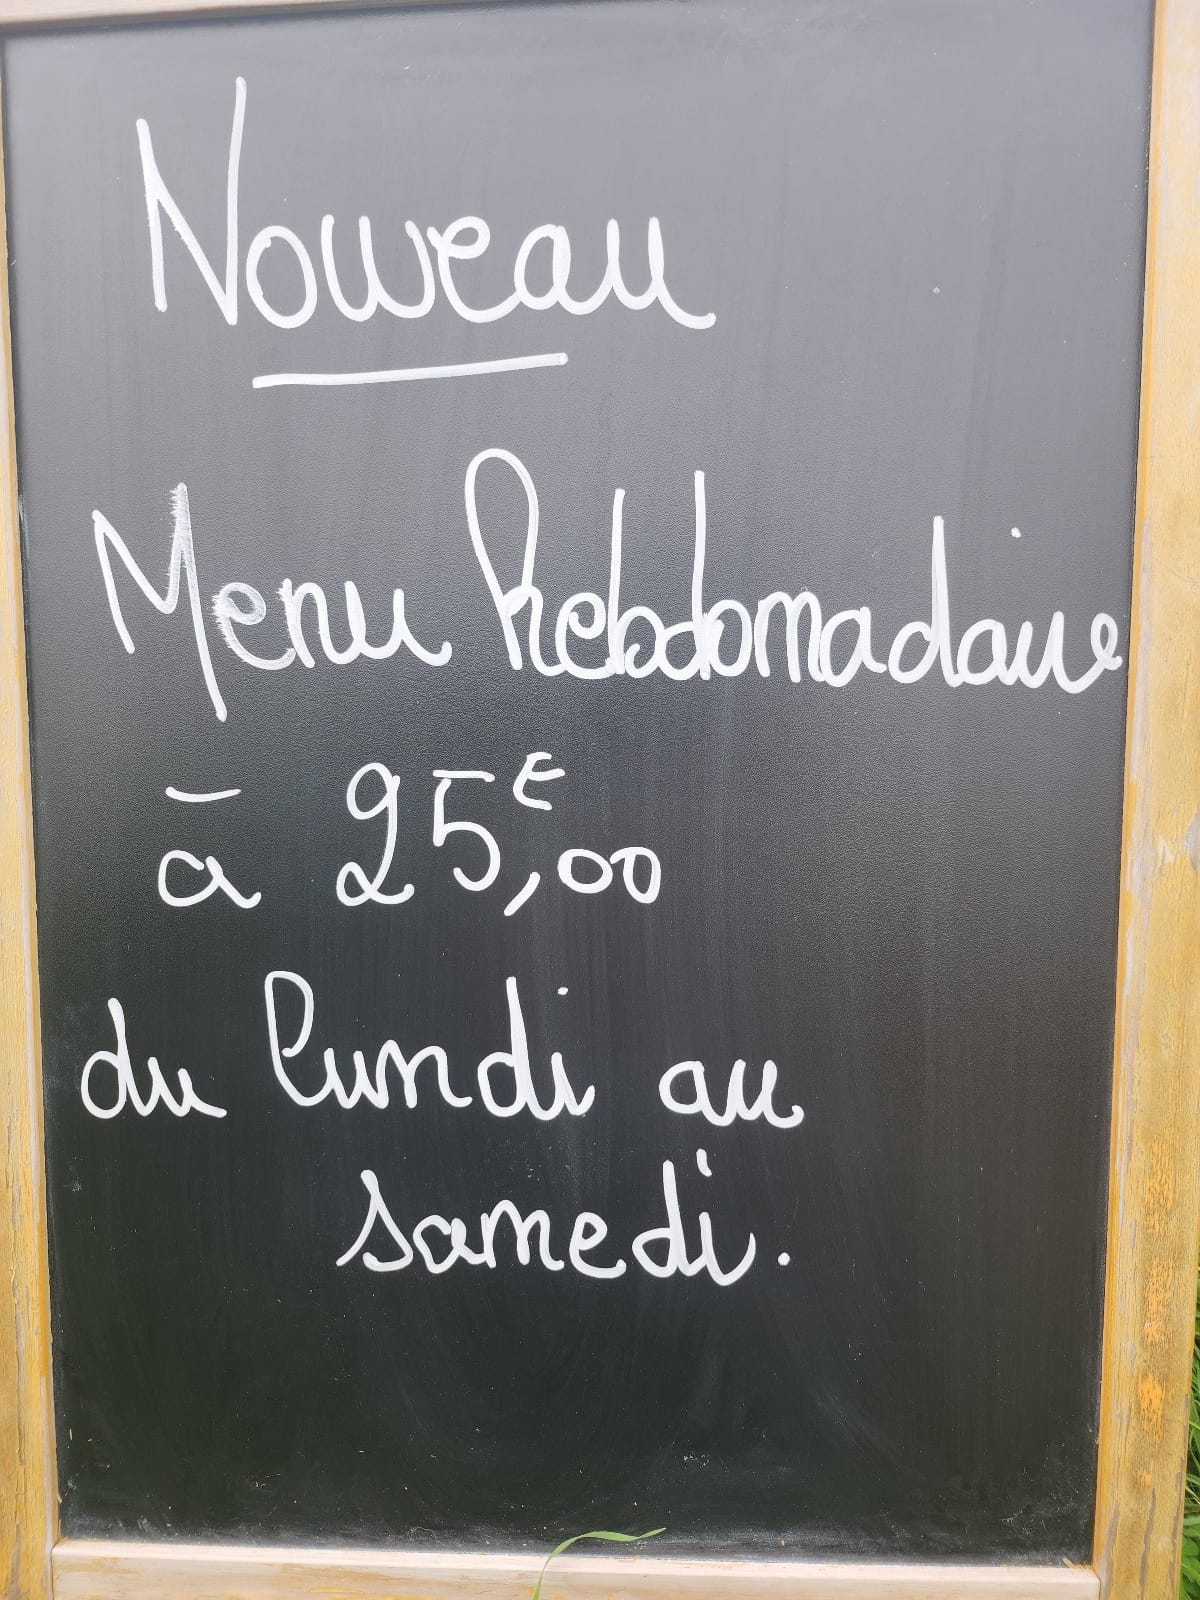 Nouveau
Menu hebdomadaire
à 25€,00
du lundi au
samedi.